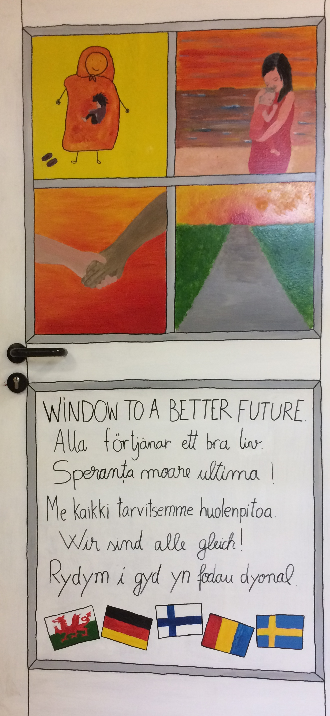 WINDOW TO A BETTER FUTURE.
Alla förtjänar ett bra liv.
Speranța moare ultima!
Me kaikki tarvitsemme huolenpitoa.
Wir sind alle gleich!
Rydym i gyd yn fodau dyonal.